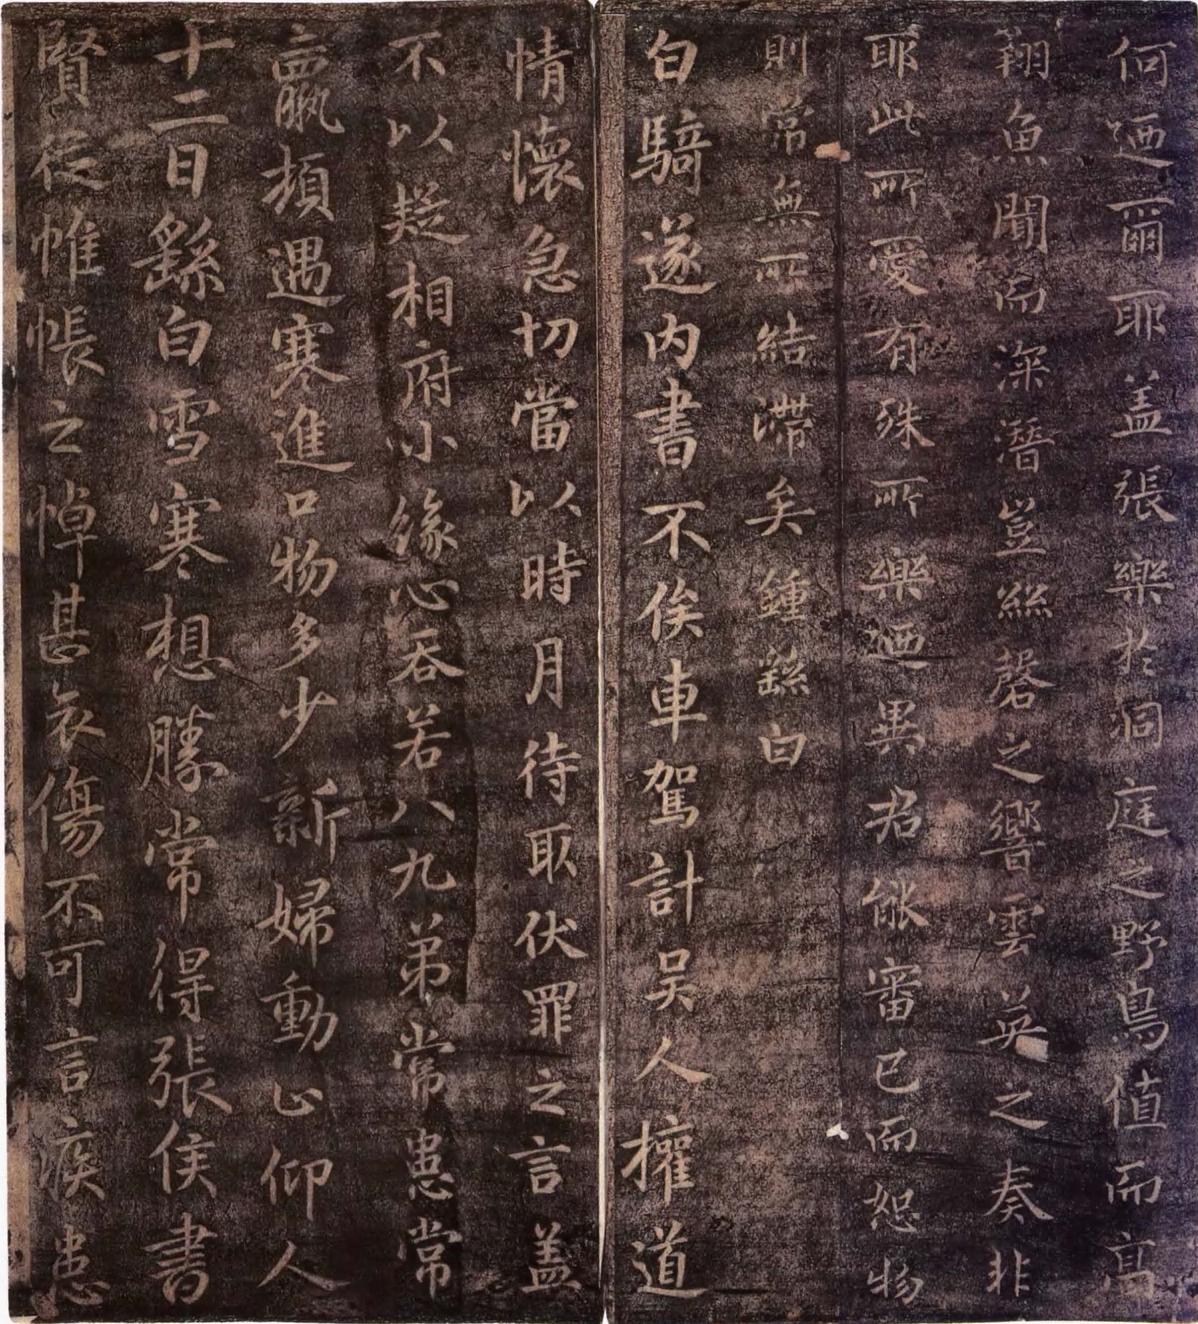 何廼爾耶盖張樂於洞庭之野鳥值而高
翔魚聞而深潛豈絲磬之響雲英之奏非
耶此所愛有殊所樂廼異君能審己而恕物
則常無所結滯矣鍾繇白
白騎遂内書不俟車駕計吴人權道
情懷急切當以時月待取伏罪之言盖
不以疑相府小緣心吞若八九弟常患常
羸頓遇寒進口物多少新婦動止仰人
十二日繇白雪寒想勝常得張侯書
賢從帷帳之悼甚哀傷不可言疾患